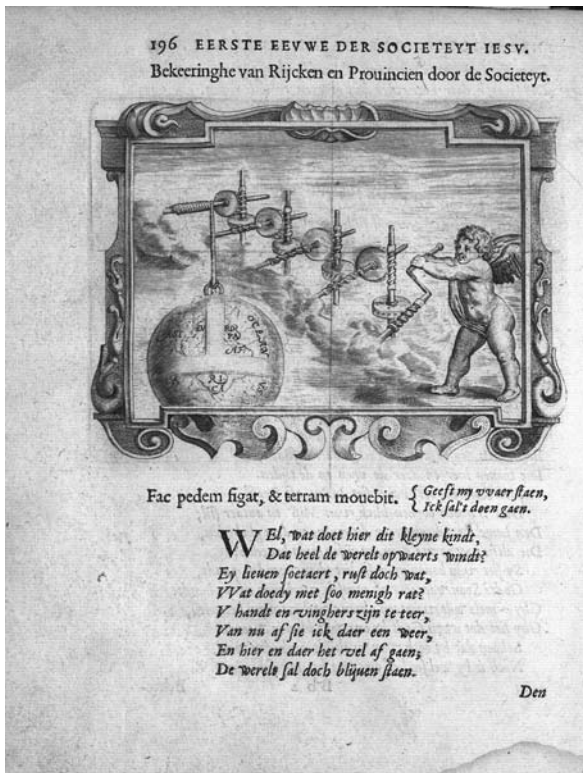 196 EERSTE EEVWE DER SOCIETEYT IESV.
Bekeeringhe van Rijcken en Prouincien door de Societeyt.
Fac pedem figat, & terram mouebit. { Geeft my vvaer staen,
Ick sal't doen gaen.
WEl, wat doet hier dit kleyne kindt,
Dat heel de werelt opwaerts windt?
Ey lieuen soetaert, rust doch wat,
VVat doedy met soo menigh rat?
V handt en vinghers zijn te teer,
Van nu af sie ick daer een weer,
En hier en daer het vel af gaen;
De werelt sal doch blijuen staen.
Den